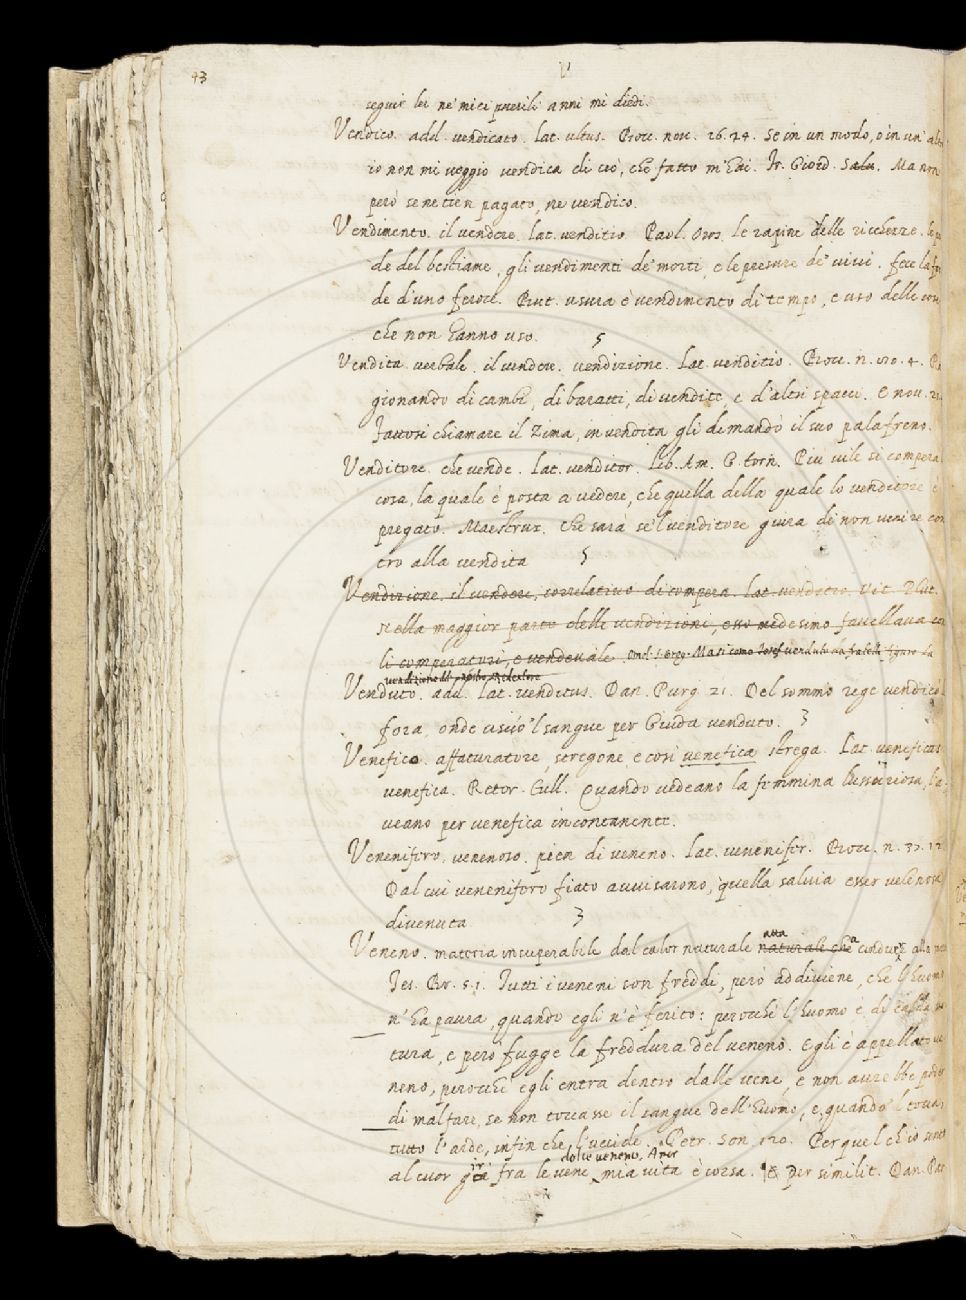 93
V
seguir lei ne' miei puerili anni mi diedi.
Vendico. add. vendicato. lat. ultus. Bocc. nov. 26. 24. Se in un modo, o in un' alt
io non mi veggio vendica di ciò, che fatto m'hai. fr. Giord. Salu. Ma non
però se ne tien pagato, ne vendico.
Vendimento. il vendere. lat. venditio. Paol. Oros. le rapine delle ricchezze. le
de del bestiame, gli vendimenti de' morti, e le presure de' vivi. fece la
de d'uno feroce. But. usura è vendimento di tempo, e uso delle cose
che non hanno uso. 5
Vendita. verbale. il vendere. vendizione. lat. venditio. Bocc. n. 4.
gionando di cambi, di baratti, di vendite, e d'altri spacci. E nov.
fattosi chiamare il Zima, in vendita gli domandò il suo palafreno.
Venditore. che vende. lat. venditor. lib. Am. G. torn. Più vile si compera
cosa, la quale è posta a vedere, che quella della quale lo venditore è
pregato. Maestruz. Che sarà se 'l venditore giura di non venire con
tro alla vendita 5
Vendizione. il vendere, correlativo di compera. lat. venditio. Vit. Plut.
Nella maggior parte delle vendizioni, esso medesimo favellava co
li comperatori, e vendevale. Omel. s. Greg. Ma sì come Josef venduto da fratelli figura la
vendizione del nostro Redentore
Venduto. add. lat. venditus. Dan. Purg. 21. Del sommo rege vendicò
fora, onde uscìo 'l sangue per Giuda venduto. 3
Venefico. affatturatore, stregone, e così venefica strega. lat. veneficus
venefica. Retor. Tull. Quando vedeano la femmina lussuriosa, l'a
veano per venefica incontanente.
Venenifero. venenoso. pien di veneno. lat. venenifer. Bocc. n. 37. 12
Dal cui venenifero fiato avvisarono, quella salvia esser velenosa
divenuta 3
Veneno. materia insuperabile dal calor naturale naturale che atta a condurre alla
Tes. Br. 5. 1. Tutti i veneni son freddi, però addiviene, che l'huomo
n'ha paura, quando egli n'è ferito: perocchè l'huomo è di calda na
tura, e però fugge la freddura del veneno. Egli è appellato ve
neno, perocchè egli entra dentro dalle vene, e non avrebbe poder
di malfare, se non toccasse il sangue dell'huomo, e quando 'l tocca,
tutto l'arde, infin che l'uccide. Petr. Son. 120. Per quel ch'io sento
dolce veneno, Amor
al cuor gir fra le vene mia vita è corsa. § Per similit. Dan. Par